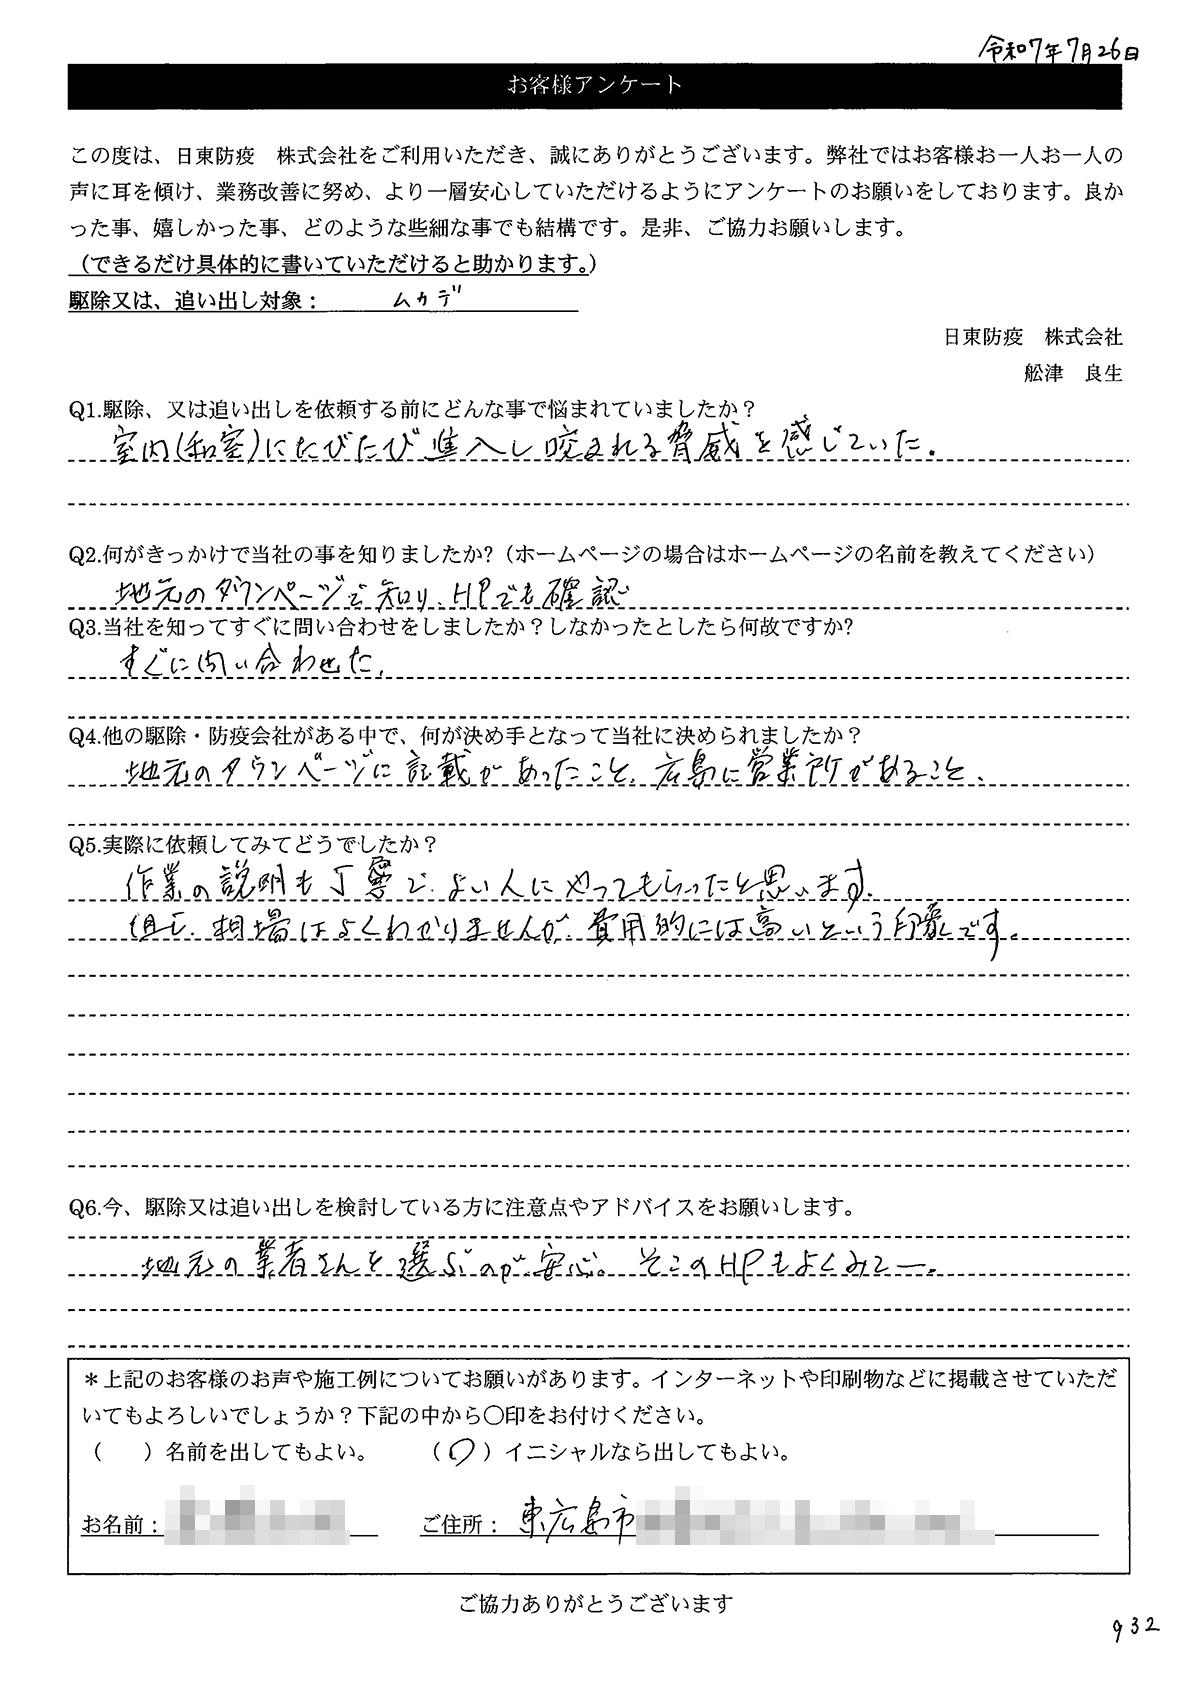 令和7年7月26日
お客様アンケート
この度は、日東防疫 株式会社をご利用いただき、誠にありがとうございます。弊社ではお客様お一人お一人の
声に耳を傾け、業務改善に努め、より一層安心していただけるようにアンケートのお願いをしております。良か
った事、嬉しかった事、どのような些細な事でも結構です。是非、ご協力お願いします。
（できるだけ具体的に書いていただけると助かります。）
駆除又は、追い出し対象： ムカデ
日東防疫 株式会社
舩津 良生
Q1.駆除、又は追い出しを依頼する前にどんな事で悩まれていましたか？
室内(和室)にたびたび進入し咬まれる脅威を感じていた。
Q2.何がきっかけで当社の事を知りましたか?（ホームページの場合はホームページの名前を教えてください）
地元のタウンページで知り、HPでも確認
Q3.当社を知ってすぐに問い合わせをしましたか？しなかったとしたら何故ですか?
すぐに問い合わせた。
Q4.他の駆除・防疫会社がある中で、何が決め手となって当社に決められましたか？
地元のタウンページに記載があったこと、広島に営業所があること、
Q5.実際に依頼してみてどうでしたか？
作業の説明も丁寧で、よい人にやってもらったと思います。
但し、相場はよくわかりませんが、費用的には高いという印象です。
Q6.今、駆除又は追い出しを検討している方に注意点やアドバイスをお願いします。
地元の業者さんを選ぶのが安心。そこのHPもよくみてー。
＊上記のお客様のお声や施工例についてお願いがあります。インターネットや印刷物などに掲載させていただ
いてもよろしいでしょうか？下記の中から〇印をお付けください。
（ ）名前を出してもよい。 （〇）イニシャルなら出してもよい。
お名前： ご住所： 東広島市
ご協力ありがとうございます
932